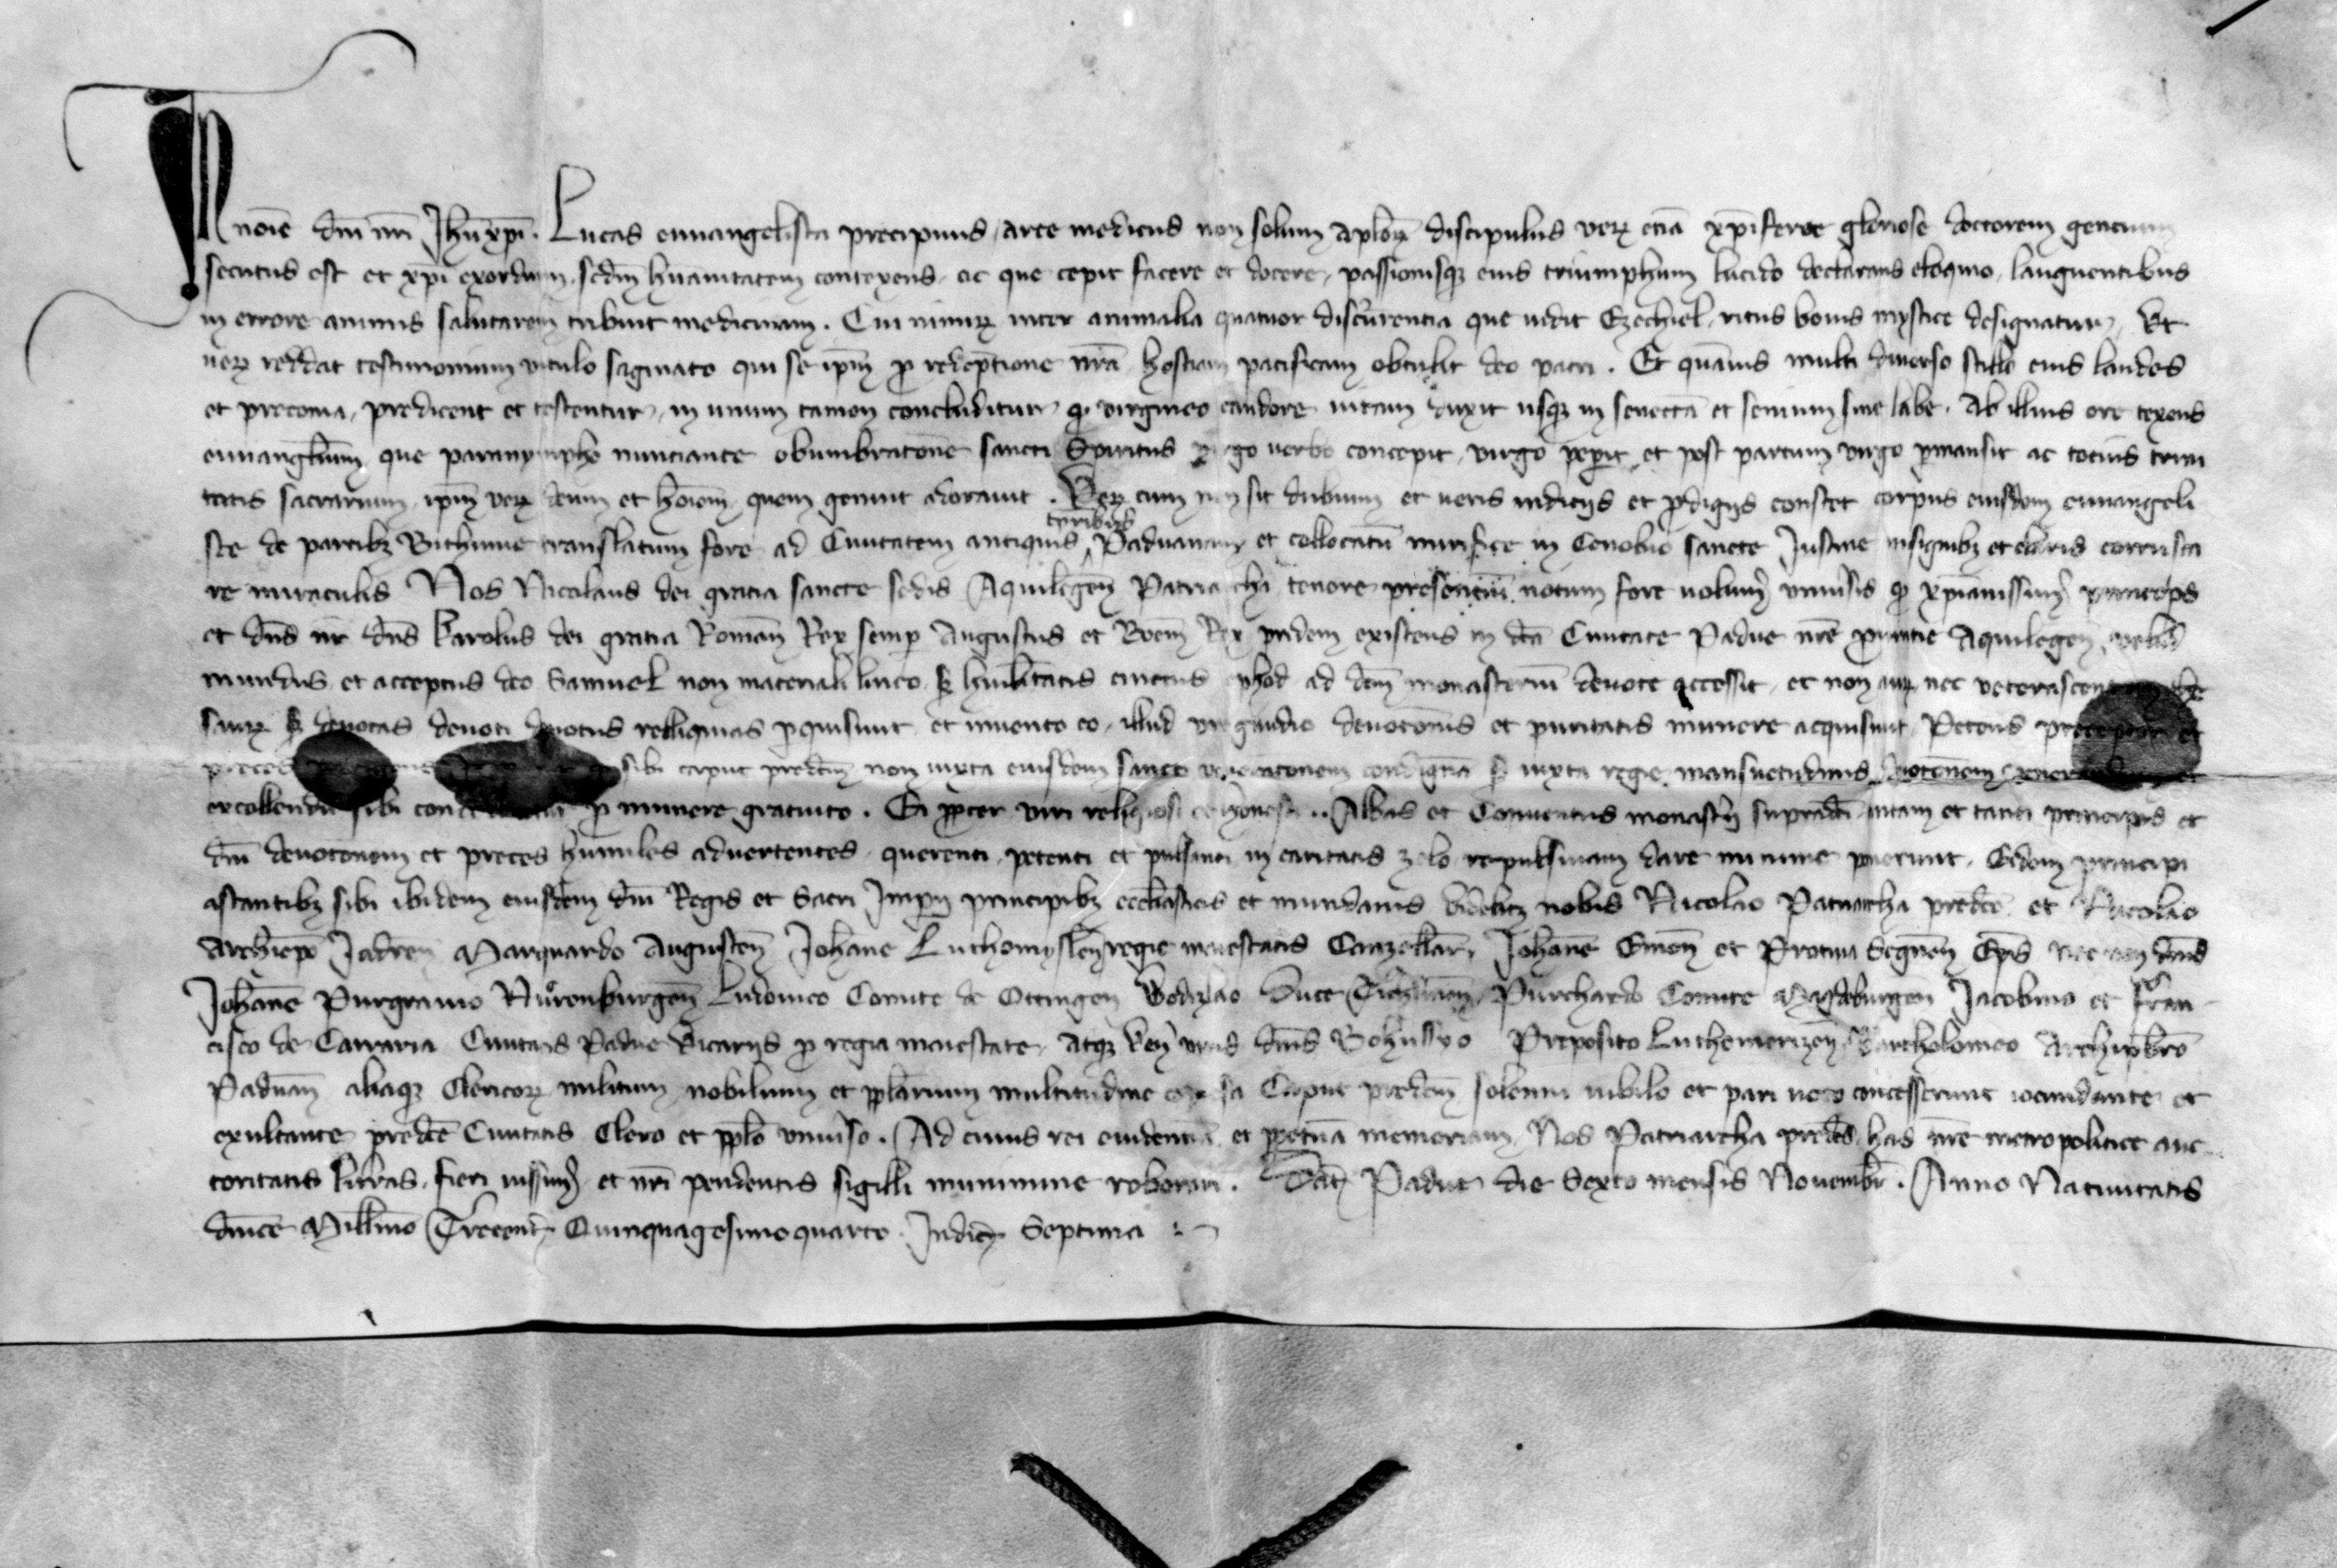 In noīe dn̄i nr̄i Jhū xp̄i. Lucas euuangelista precipuus arte medicus non solum aplōꝝ discipulus veꝝ eciā xp̄ifere gloriose doctorem gencium
secutus est et xp̄i exordium scd̄m hūanitatem contexens ac que cepit facere et docere, passionisqꝫ eius triumphum lucido declarans eloquio, languentibus
in errore animis salutarem tribuit medicinam. Cui nimiꝝ inter animalia quatuor discurrencia que uidit Ezechiel, ritus bouis mystice designatur, Ut
ueꝝ reddat testimonium vitulo saginato qui se ip̄m ꝓ redēptione nr̄a hostiam pacificam obtulit deo patri. Et quāuis multi diuerso stillo eius laudes
et preconia, predicent et testentur, in unum tamen concluditur qꝫ virgineo candore uitam duxit usqꝫ in senectā et senium sine labe. Ab illius ore texens
euuangelīum que paranympho nunciante obumbratōne sancti Spiritus virgo uerbo concepit, virgo peperit, et post partum virgo ꝑmansit ac totius trini
tatis sacrarium, ip̄m veꝝ deum et hoīem, quem genuit adorauit. Veꝝ cum non sit dubium et ueris indicijs et ꝓdigijs constet corpus eiusdem euuangeli
ste de partibꝫ Bithinie translatum fore ad Ciuitatem antiquis tp̄ribus Paduanam et collocatū mirifice in Cenobio sancte Justine insignibꝫ et claris corrusca
re miraculis Nos Nicolaus dei gratia sancte sedis Aquilegen̄ Patriarcha tenore presenciū notum fore uolumꝰ vniuersis qꝫ xp̄ianissimꝰ princeps
et dn̄s nr̄ dn̄s Karolus dei gratia Roman̄ Rex semꝑ Augustus et Boem̄ Rex pridem existens in dc̄a Ciuitate Padue nr̄e ꝓuincie Aquilegen̄ velud
mundus et acceptus deo Samuel non materiali lineo sꝫ humilitatis cinctus ephod ad dc̄m monasteriū deuote accessit, et non auꝝ nec veterascentem the
sauꝝ sꝫ deuotas deuoti deuotus relliquias ꝑquisiuit et inuento eo, illud gaudio deuotōnis et puritatis munere acquisiuit, Petens preceptor et
preces sibi caput predc̄m non iuxta eiusdem sancti veneratōnem condignā sꝫ iuxta regie mansuetudinis deuotōnem et
excollendū sibi ꝓ munere gratuito. Ei ꝓpter viri religiosi et honesti .. Abbas et Conuentus monasterij supradc̄i intam et tanti principis et
dn̄i deuotōnem et preces humiles aduertentes, querenti, petenti et pulsanti in caritatis zelo repulsiuam dare minime potuerunt, Eidem principi
astantibꝫ sibi ibidem eiusdem dn̄i Regis et Sacri Imperij principibꝫ eccl̄iasticis et mundanis videlicet nobis Nicolao Patriarcha predc̄o et Nicolao
Archiep̄o Jadren̄ Marquardo Augusten̄ Johane Luthomyslen̄ regie maiestatis Canzellar̄, Johāne Emon̄ et Protiua Segnen̄ Ep̄is necnon dn̄is
Johāne Purgrauio Nürenburgen̄ Ludouico Comite de Ottingen Bodizlao Duce Purchardo Comite Magdeburgen Jacobino et Fran
cisco de Carraria Ciuitatis Padue Vicarijs ꝓ regia maiestate, atqꝫ Ven̄ viris dn̄is Bohusso Preposito Luthomericzen̄ Bartholomeo Archip̄bro
Paduan̄ aliaqꝫ Clericoꝝ militum nobilium et ppl̄arium multitudine copiosa Caput predc̄m solenni iubilo et pari uoto concesserunt iocundante et
exultante predc̄e Ciuitatis Clero et ppl̄o vniuerso. Ad cuius rei euidentiā et ꝑpetuā memoriam Nos Patriarcha predc̄s has nr̄e metropolitice auc
toritatis litteras fieri iussimꝰ et nr̄i pendentis sigilli munimine roborari. Dat̄ Padue die Sexto mensis Nouembr̄. Anno Natiuitatis
dn̄ice Millīmo Trecent̄ Quinquagesimoquarto Indicc̄ Septima